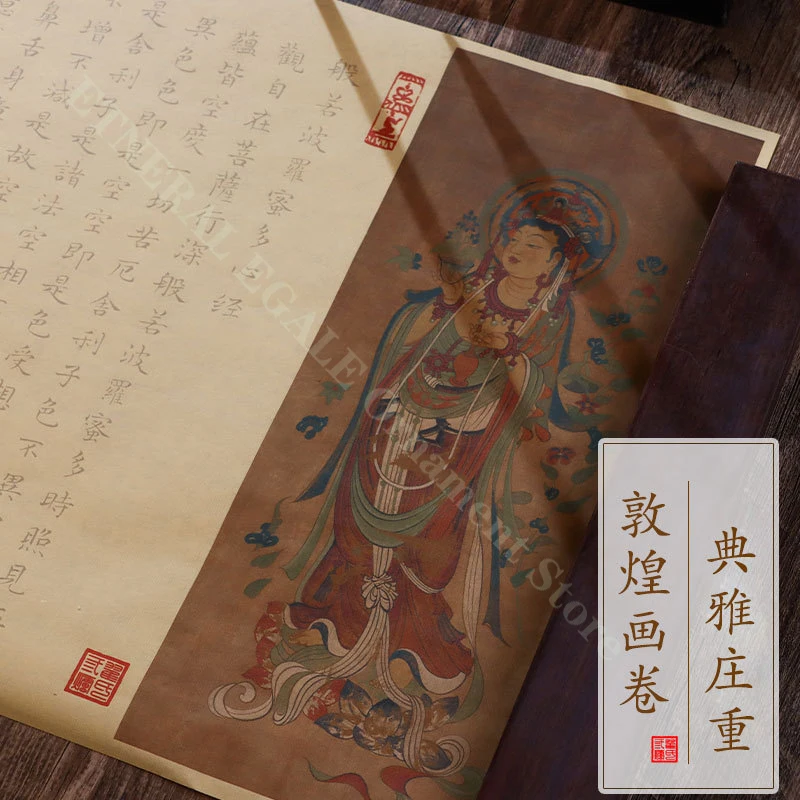 般若波羅蜜多心经
觀自在菩薩行深般若波羅蜜多時照見五
蘊皆空度一切苦厄舍利子色不異
異色色即是空空即是色受想
是舍利子是諸法空相
不增不減是故空
鼻舌身
典雅庄重
敦煌画卷
ETNERAL EGALE Ornament Store